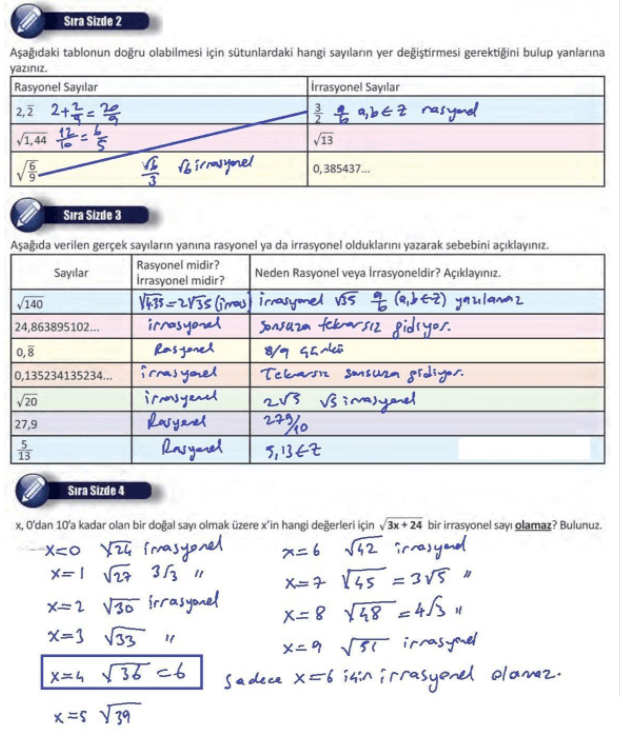 Sıra Sizde 2
Aşağıdaki tablonun doğru olabilmesi için sütunlardaki hangi sayıların yer değiştirmesi gerektiğini bulup yanlarına
yazınız.
Rasyonel Sayılar İrrasyonel Sayılar
2,2̅ 2+2/9=20/9 3/2 a/b a,b∈Z rasyonel
√1,44 12/10=6/5 √13
√(6/9) √6/3 √6 irrasyonel 0,385437...
Sıra Sizde 3
Aşağıda verilen gerçek sayıların yanına rasyonel ya da irrasyonel olduklarını yazarak sebebini açıklayınız.
Sayılar Rasyonel midir? İrrasyonel midir? Neden Rasyonel veya İrrasyoneldir? Açıklayınız.
√140 √4·35=2√35 (irras) irrasyonel √35 a/b (a,b∈Z) yazılamaz
24,863895102... irrasyonel Sonsuza tekrarsız gidiyor.
0,8̅ Rasyonel 8/9 çünkü
0,135234135234... irrasyonel Tekrarsız sonsuza gidiyor.
√20 irrasyonel 2√5 √5 irrasyonel
27,9 Rasyonel 279/10
5/13 Rasyonel 5,13∈Z
Sıra Sizde 4
x, 0'dan 10'a kadar olan bir doğal sayı olmak üzere x'in hangi değerleri için √3x + 24 bir irrasyonel sayı olamaz? Bulunuz.
x=0 √24 irrasyonel
x=1 √27 3√3 "
x=2 √30 irrasyonel
x=3 √33 "
x=4 √36 =6
x=5 √39
x=6 √42 irrasyonel
x=7 √45 =3√5 "
x=8 √48 =4√3 "
x=9 √51 irrasyonel
Sadece x=6 için irrasyonel olamaz.